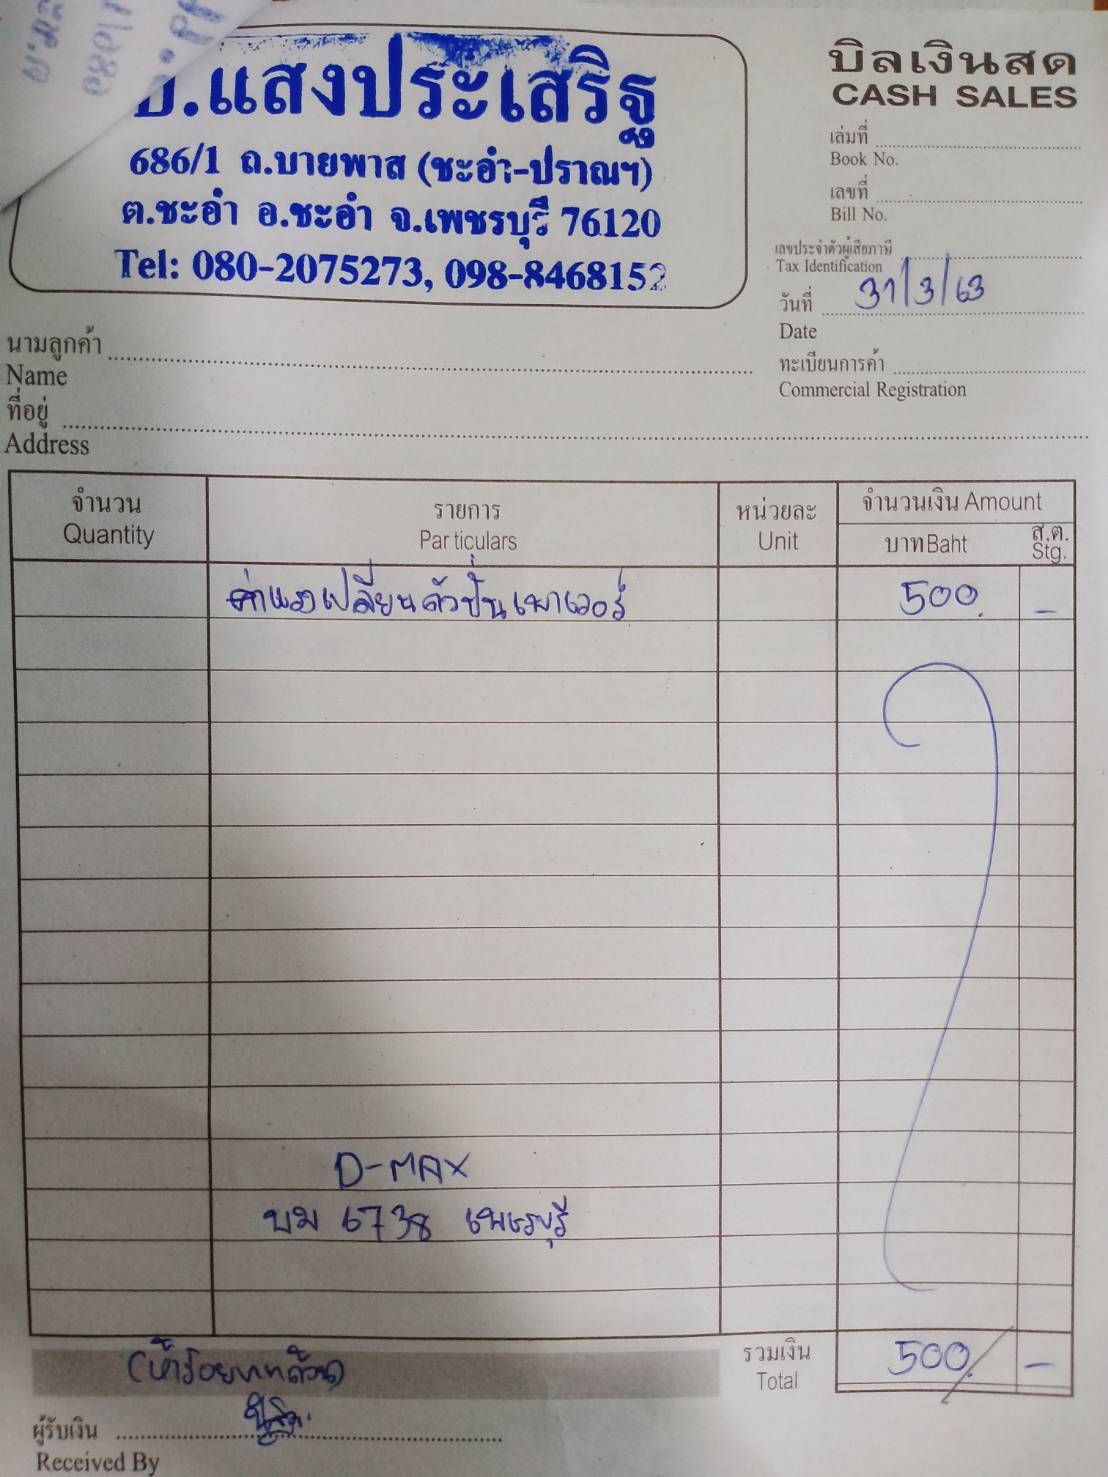 .แสงประเสริฐ
686/1 ถ.บายพาส (ชะอำ-ปราณฯ)
ต.ชะอำ อ.ชะอำ จ.เพชรบุรี 76120
Tel: 080-2075273, 098-8468152
บิลเงินสด
CASH SALES
เล่มที่
Book No.
เลขที่
Bill No.
เลขประจำตัวผู้เสียภาษี
Tax Identification
วันที่ 31/3/63
Date
ทะเบียนการค้า
Commercial Registration
นามลูกค้า
Name
ที่อยู่
Address
จำนวน รายการ หน่วยละ จำนวนเงิน Amount
Quantity Particulars Unit บาท Baht ส.ต. Stg.
ค่าแรงเปลี่ยนตัวปั้มเพาเวอร์ 500. -
D-MAX
บม 6738 เพชรบุรี
(ห้าร้อยบาทถ้วน) รวมเงิน 500. -
Total
ผู้รับเงิน
Received By